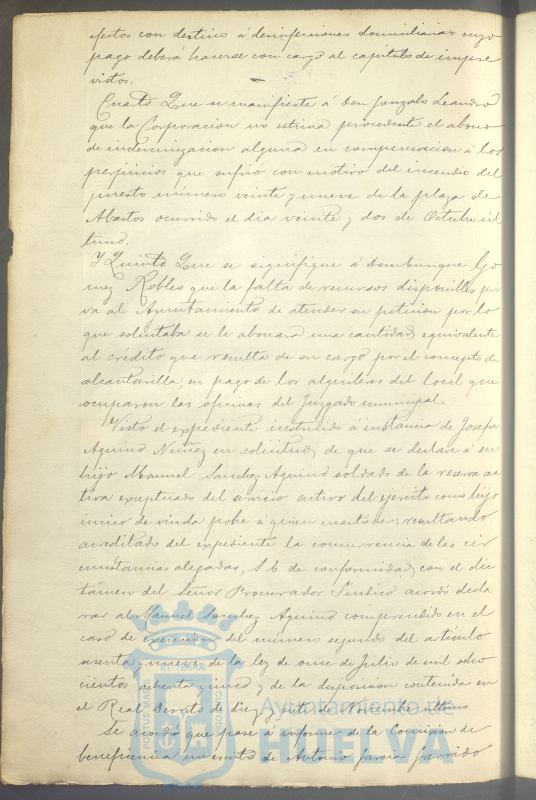 efectos con destino á desinfecciones domiciliarias cuyo
pago deberá hacerse con cargo al capítulo de impre
vistos.
Cuarto Que se manifieste á don Gonzalo Leandro
que la Corporación no estima procedente el abono
de indemnizacion alguna en compensacion á los
perjuicios que sufrió con motivo del incendio del
puesto número veinte y nueve de la plaza de
Abastos ocurrido el dia veinte y dos de Octubre úl
timo.
Y Quinto Que se signifique á don Enrique Go
mez Robles que la falta de recursos disponibles pri
va al Ayuntamiento de atender su peticion por lo
que solicitaba se le abonara una cantidad equivalente
al crédito que resulta de su cargo por el concepto de
alcantarilla, en pago de los alquileres del local que
ocuparon las oficinas del Juzgado municipal.
Visto el expediente instruido á instancia de Josefa
Aquino Nuñez en solicitud de que se declare á su
hijo Manuel Sanchez Aquino soldado de la reserva ac
tiva exceptuado del servicio activo del ejército como hijo
único de viuda pobre á quien mantiene; resultando
acreditado del expediente la concurrencia de las cir
cunstancias alegadas, S. E. de conformidad con el dic
támen del Señor Procurador Síndico acordó decla
rar al Manuel Sanchez Aquino comprendido en el
caso de excencion del número segundo del artículo
sesenta y nueve de la ley de once de Julio de mil ocho
cientos ochenta y cinco y de la disposicion contenida en
el Real decreto de diez y siete de Noviembre último
Se acordó que pase á informe de la Comision de
beneficencia un escrito de Antonio Garcia Garrido
Ayuntamiento de
HUELVA
PORTUS MARIS
ET TERRAE
CUSTODIA